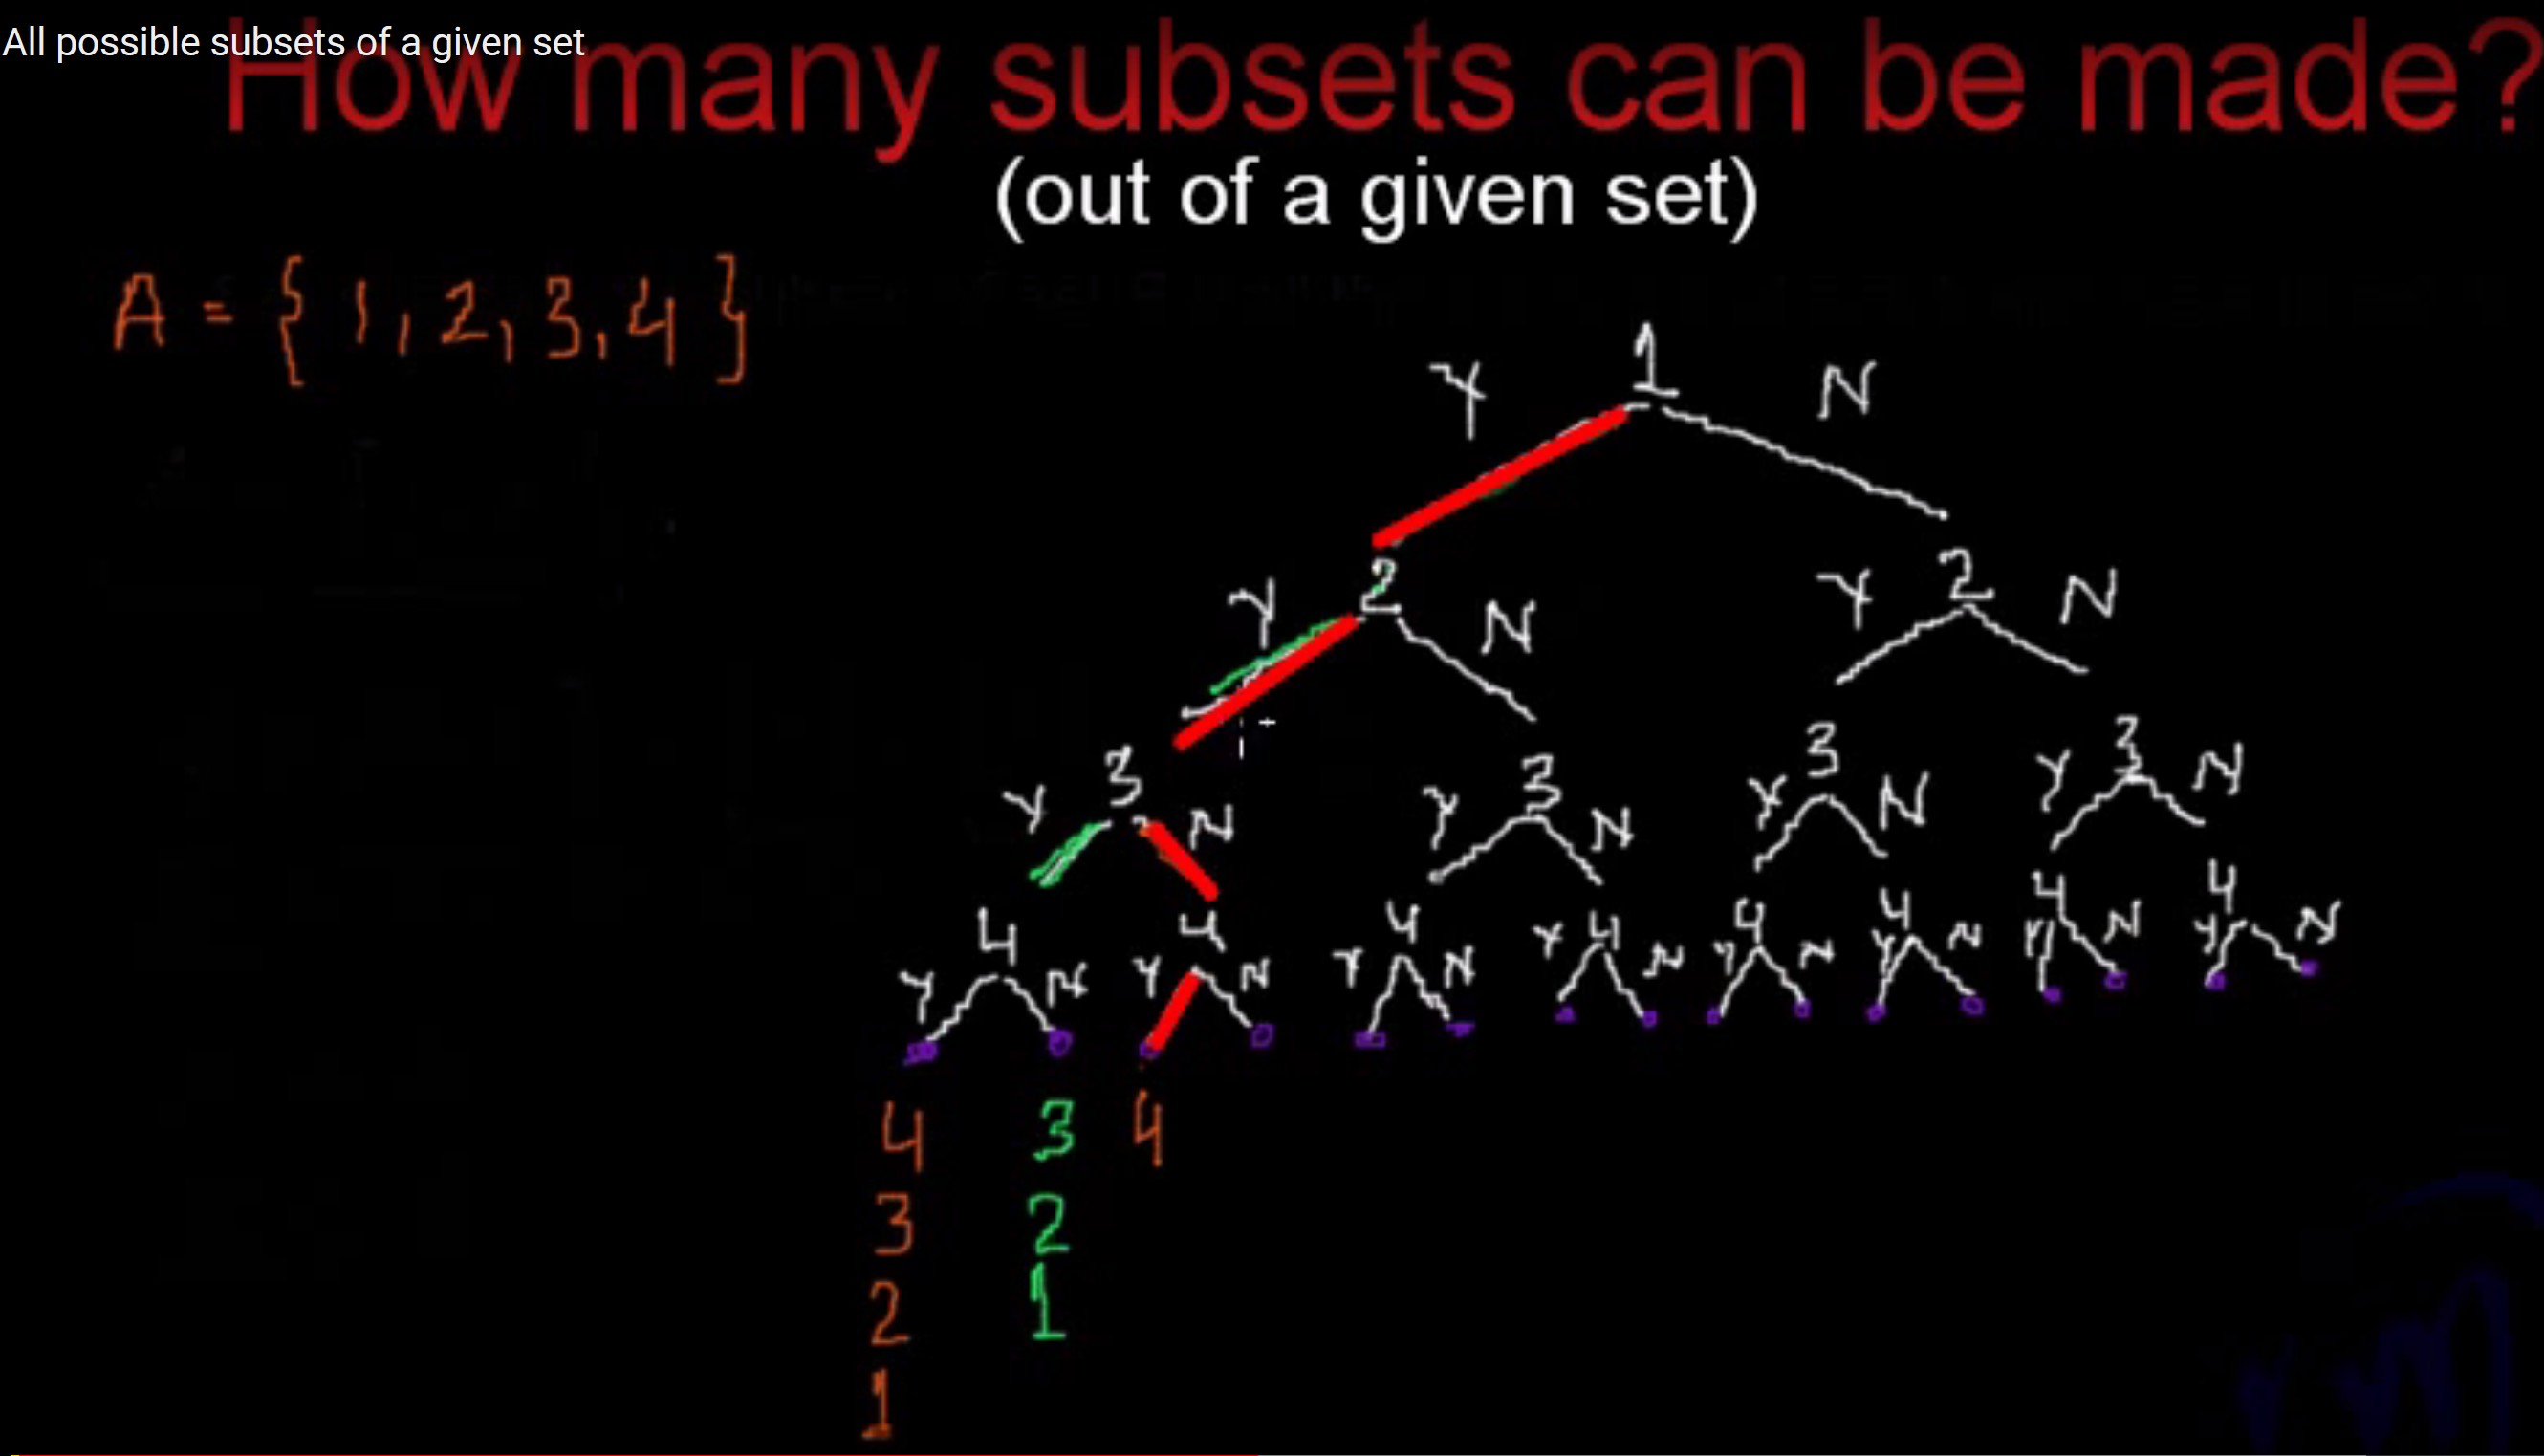 All possible subsets of a given set
How many subsets can be made?
(out of a given set)
A = { 1, 2, 3, 4 }
1
Y N
2 2
Y N Y N
3 3 3 3
Y N Y N Y N Y N
4 4 4 4 4 4 4 4
Y N Y N Y N Y N Y N Y N Y N Y N
4 3 4
3 2
2 1
1